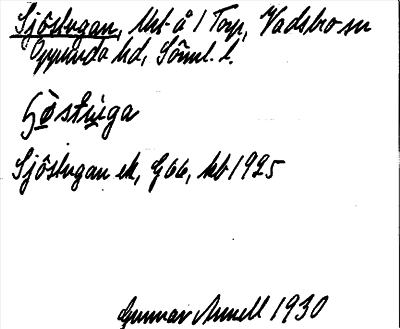 Sjöstugan, lht å 1 Torp, Vadsbro sn
Oppunda hd, Söml. l.
Sjöstugan ek, G66, kb 1925
Gunnar Arnell 1930